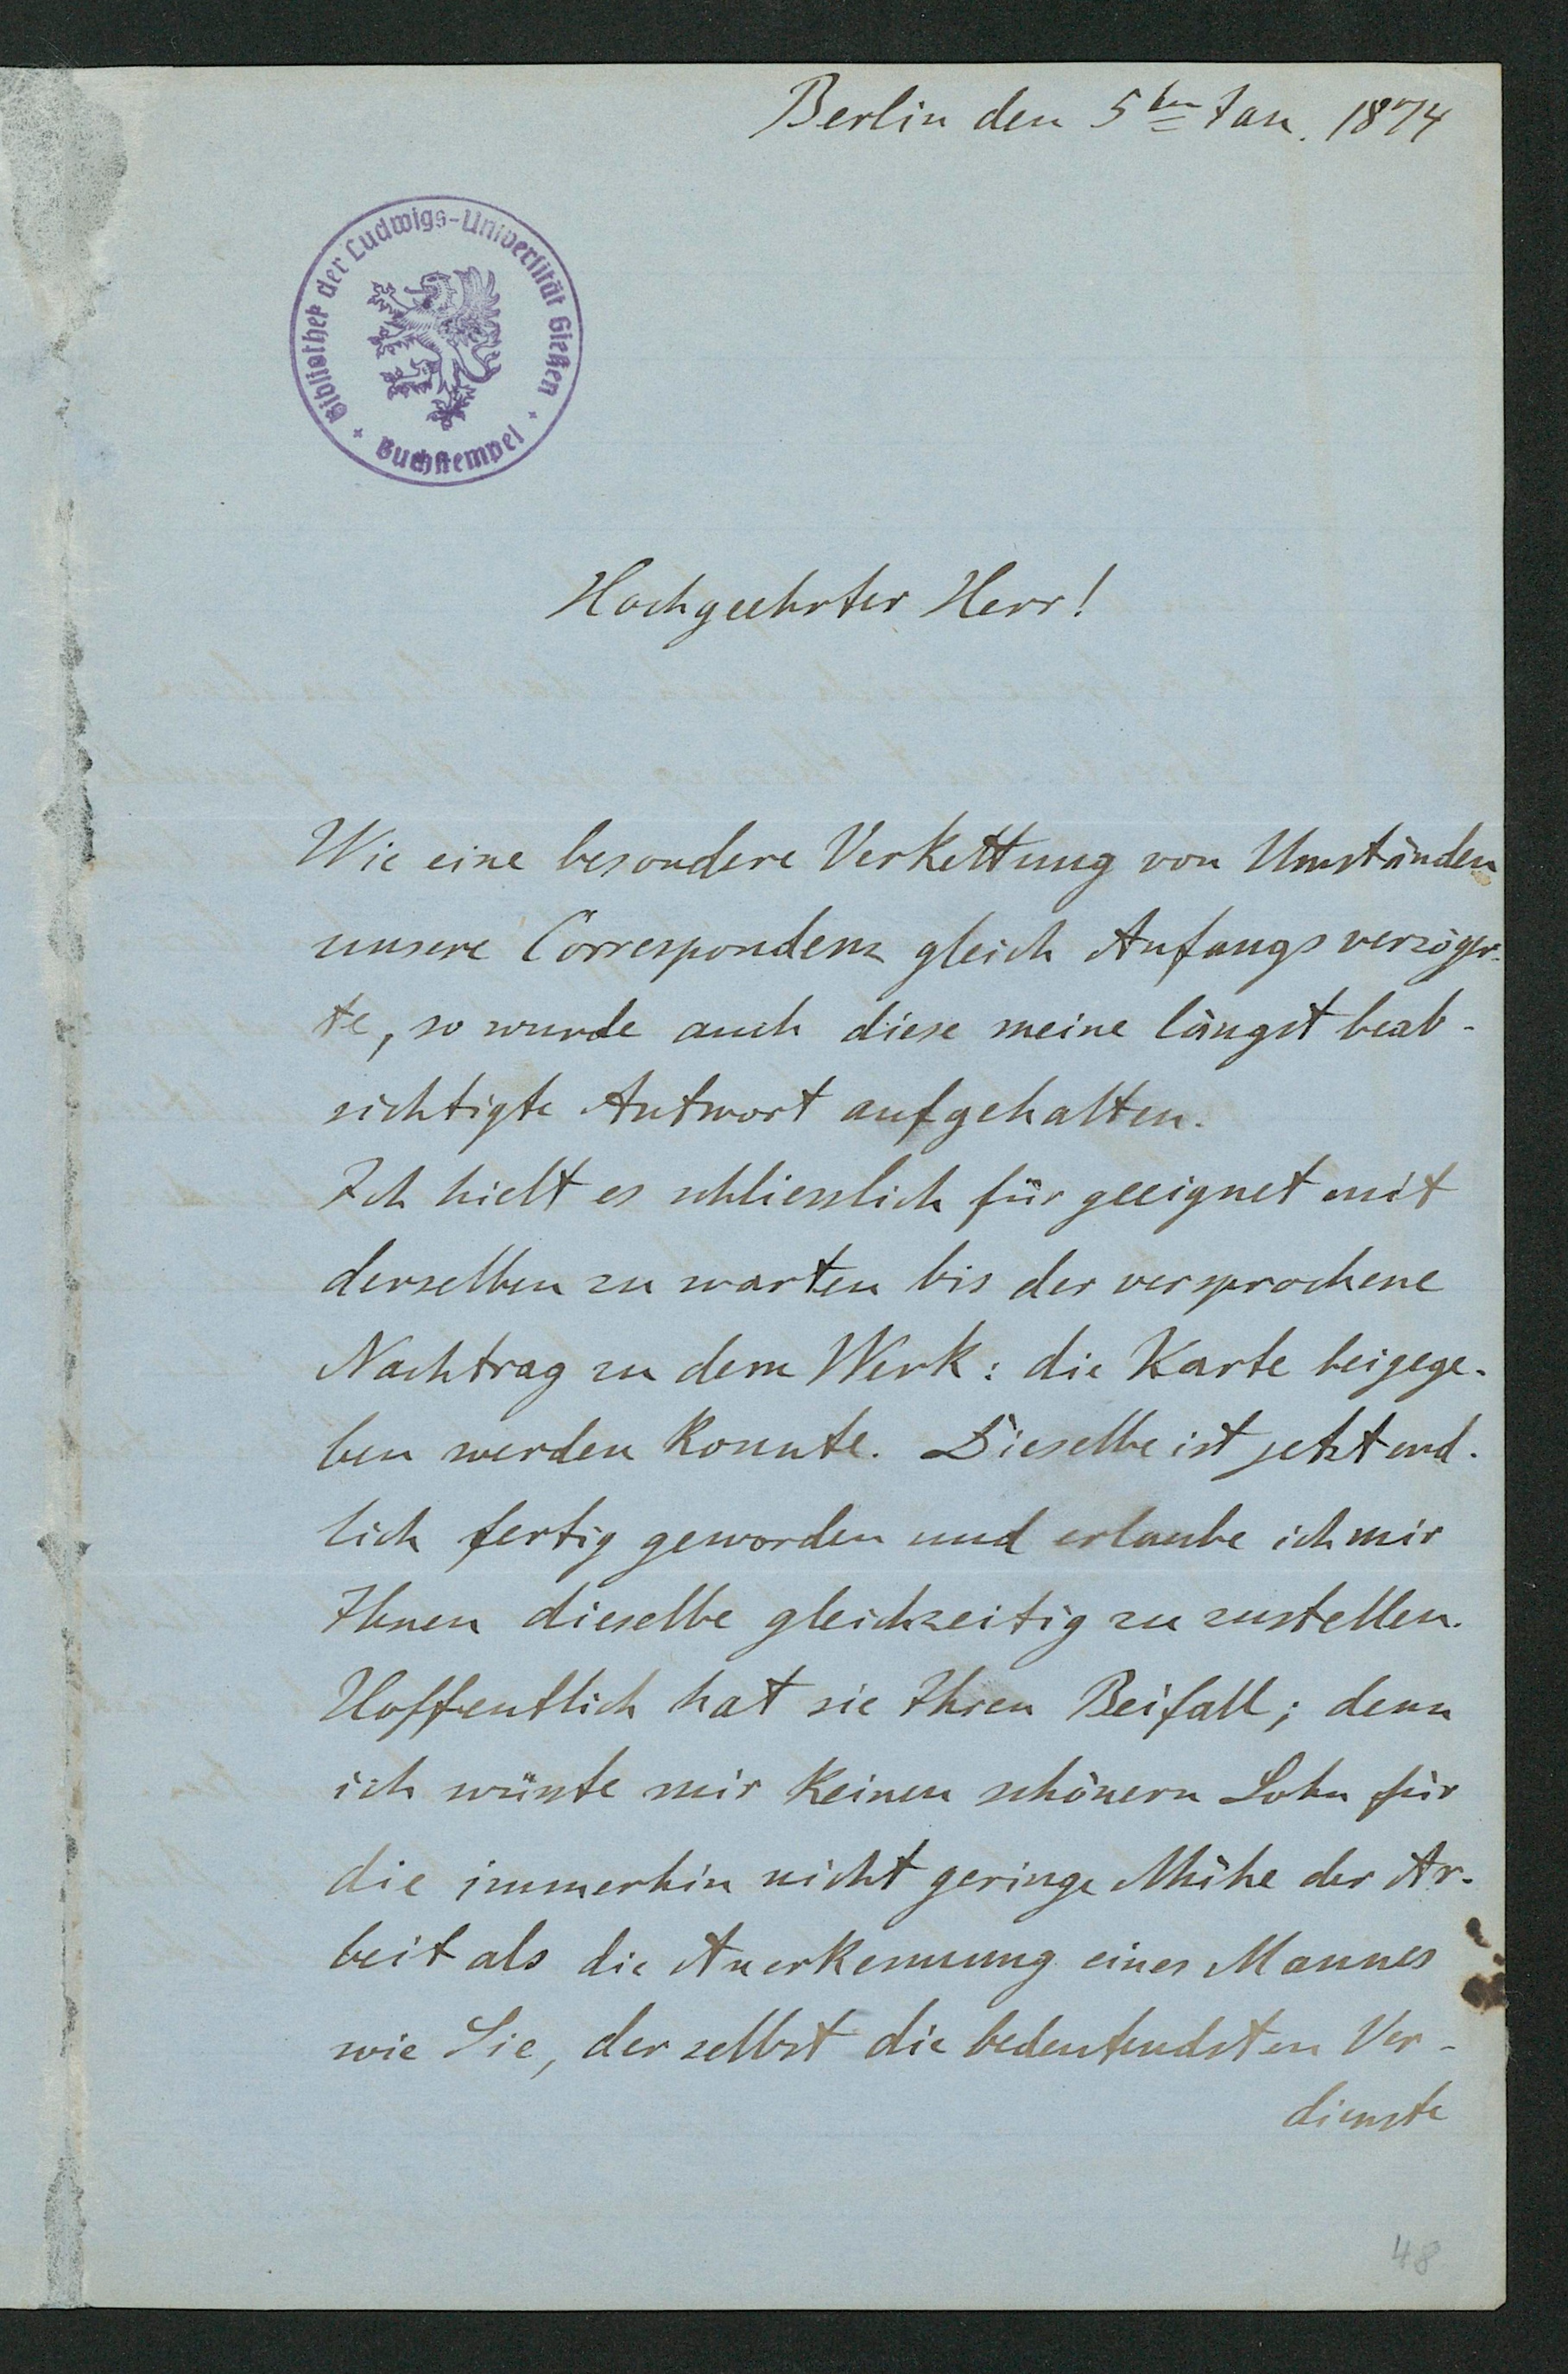 Berlin den 5ten Jan. 1874
Bibliothek der Ludwigs-Universität Gießen
Buchstempel
Hochgeehrter Herr!
Wie eine besondere Verkettung von Umständen
unsere Correspondenz gleich Anfangs verzöger-
te, so wurde auch diese meine längst beab-
sichtigte Antwort aufgehalten.
Ich hielt es schliesslich für geeignet mit
derselben zu warten bis der versprochene
Nachtrag zu dem Werk: die Karte beigege-
ben werden konnte. Dieselbe ist jetzt end-
lich fertig geworden und erlaube ich mir
Ihnen dieselbe gleichzeitig zu zustellen.
Hoffentlich hat sie Ihren Beifall; denn
ich wüsste mir keinen schönern Lohn für
die immerhin nicht geringe Mühe der Ar-
beit als die Anerkennung eines Mannes
wie Sie, der selbst die bedeutendsten Ver-
dienste
48